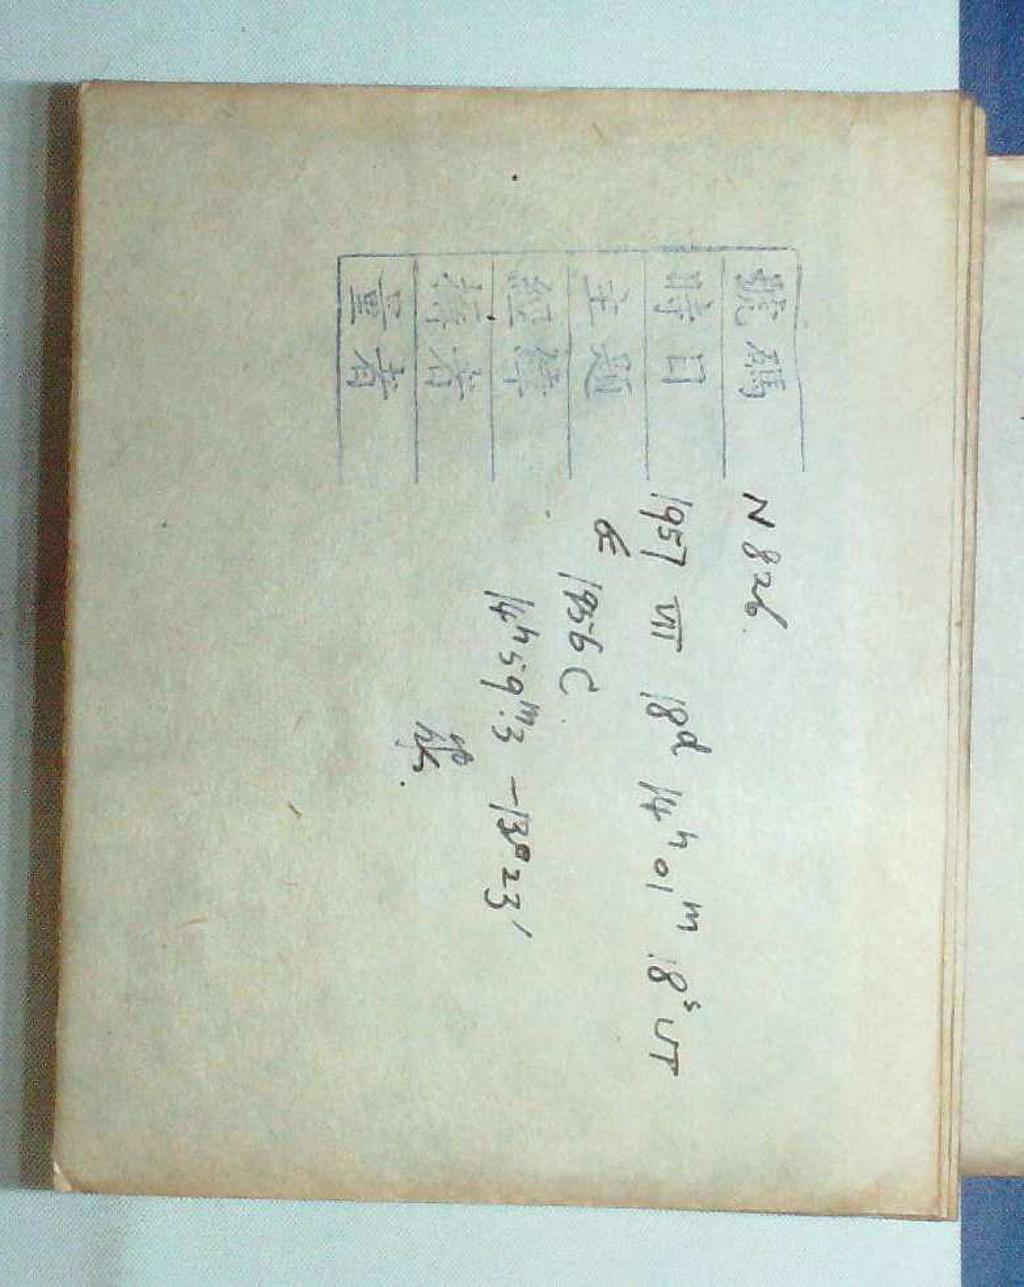 號碼 N 826
時日 1957 VII 18d 14h 01m 18s UT
主題 1956 C
經緯 14h 59m.3 -13° 23'
攝者 張
量者